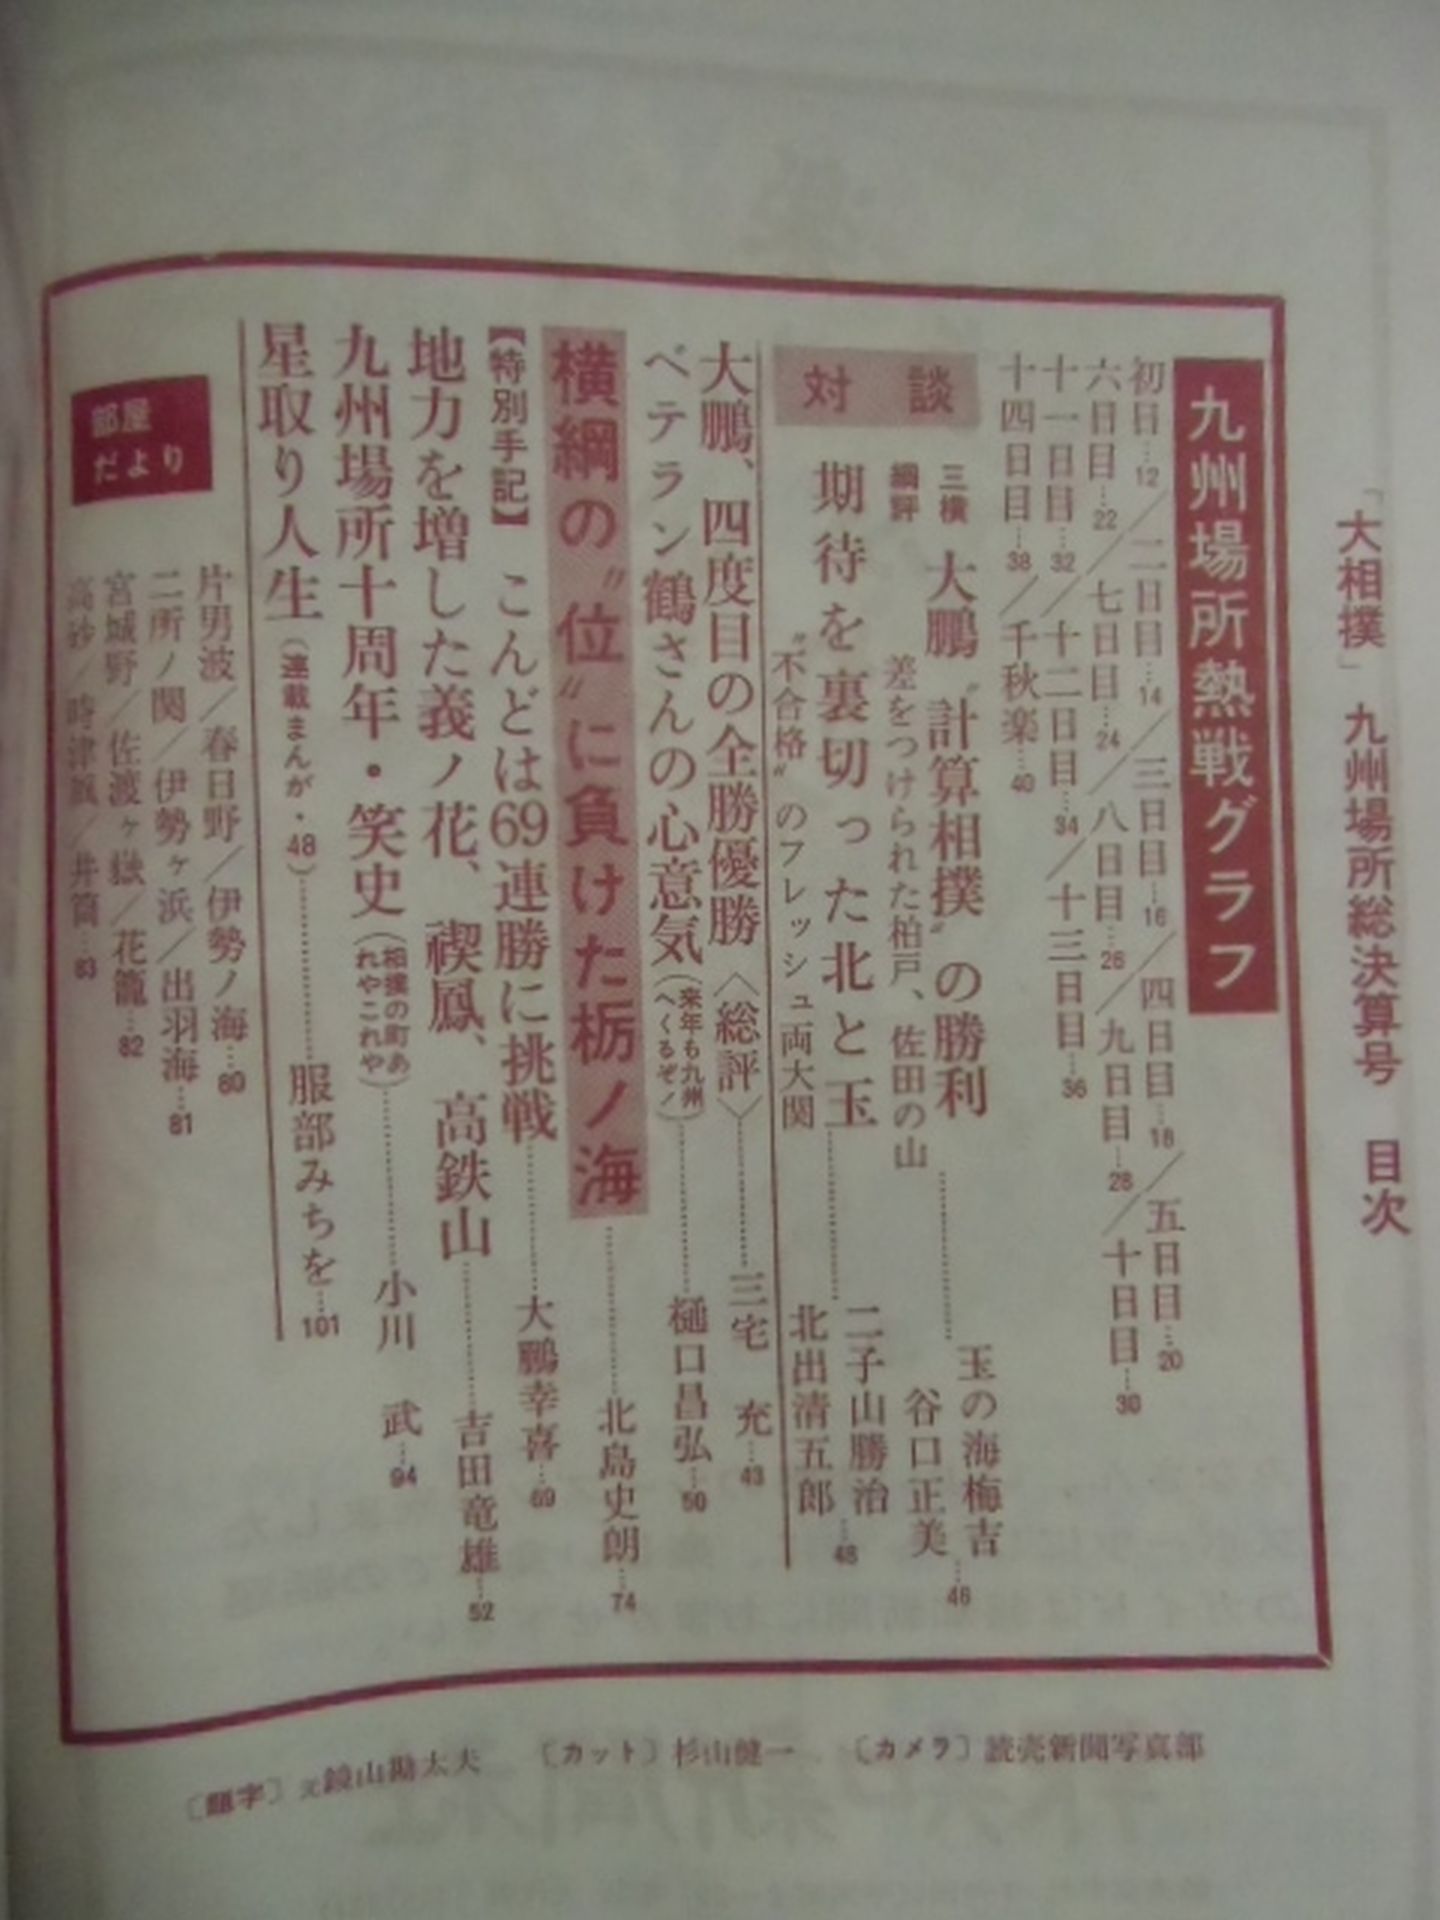 「大相撲」九州場所総決算号 目次
九州場所熱戦グラフ
初日…12／二日目…14／三日目…16／四日目…18／五日目…20
六日目…22／七日目…24／八日目…26／九日目…28／十日目…30
十一日目…32／十二日目…34／十三日目…36
十四日目…38／千秋楽…40
対談
三横綱評
大鵬〝計算相撲〟の勝利
差をつけられた柏戸、佐田の山
玉の海梅吉
谷口正美…46
期待を裏切った北と玉
〝不合格〟のフレッシュ両大関
二子山勝治
北出清五郎…48
大鵬、四度目の全勝優勝〈総評〉………三宅 充…43
ベテラン鶴さんの心意気(来年も九州へくるぞ！)………樋口昌弘…50
横綱の〝位〟に負けた栃ノ海………北島史朗…74
【特別手記】こんどは69連勝に挑戦………大鵬幸喜…69
地力を増した義ノ花、禊鳳、高鉄山………吉田竜雄…52
九州場所十周年・笑史(相撲の町あれやこれや)………小川 武…94
星取り人生(連載まんが・48)………服部みちを…101
部屋だより
片男波／春日野／伊勢ノ海…80
二所ノ関／伊勢ヶ浜／出羽海…81
宮城野／佐渡ヶ嶽／花籠…82
高砂／時津風／井筒…83
〔題字〕元鏡山勘太夫 〔カット〕杉山健一 〔カメラ〕読売新聞写真部